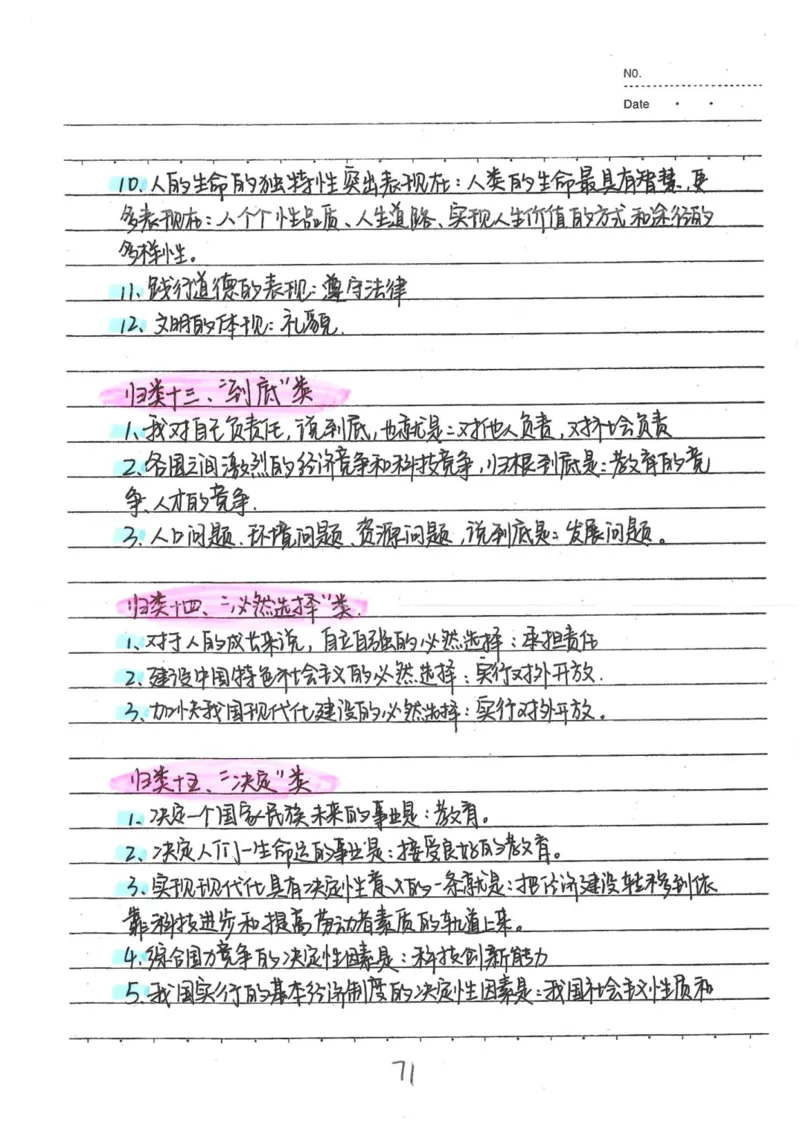 NO.
Date
10、人的生命的独特性突出表现在：人类的生命最具有智慧，更
多表现在：人个个性品质、人生道路、实现人生价值的方式和途径的
多样性。
11、践行道德的表现：遵守法律
12、文明的体现：礼貌.
归类十三、"到底"类
1、我对自己负责任，说到底，也就是：对他人负责，对社会负责
2、各国之间激烈的经济竞争和科技竞争，归根到底是：教育的竞
争、人才的竞争.
3、人口问题、环境问题、资源问题，说到底是：发展问题。
归类十四、"必然选择"类.
1、对于人的成长来说，自立自强的必然选择：承担责任
2、建设中国特色社会主义的必然选择：实行对外开放.
3、加快我国现代化建设的必然选择：实行对外开放。
归类十五、"决定"类
1、决定一个国家民族未来的事业是：教育。
2、决定人们一生命运的事业是：接受良好的教育。
3、实现现代化具有决定性意义的一条就是：把经济建设转移到依
靠科技进步和提高劳动者素质的轨道上来。
4、综合国力竞争的决定性因素是：科技创新能力
5、我国实行的基本经济制度的决定性因素是：我国社会主义性质和
71